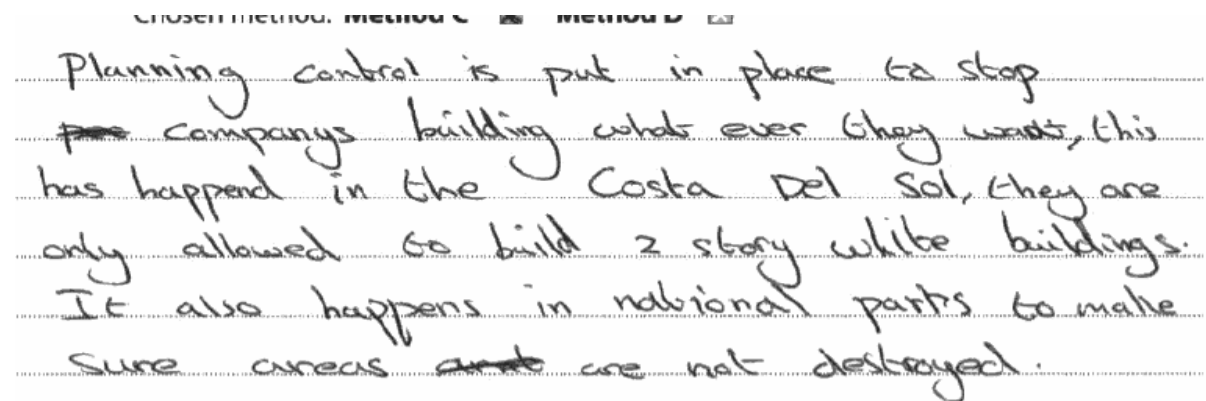 Chosen method: Method C Method D
Planning control is put in place to stop
companys building what ever they want, this
has happend in the Costa Del Sol, they are
only allowed to build 2 story white buildings.
It also happens in national parks to make
sure areas are not destroyed.